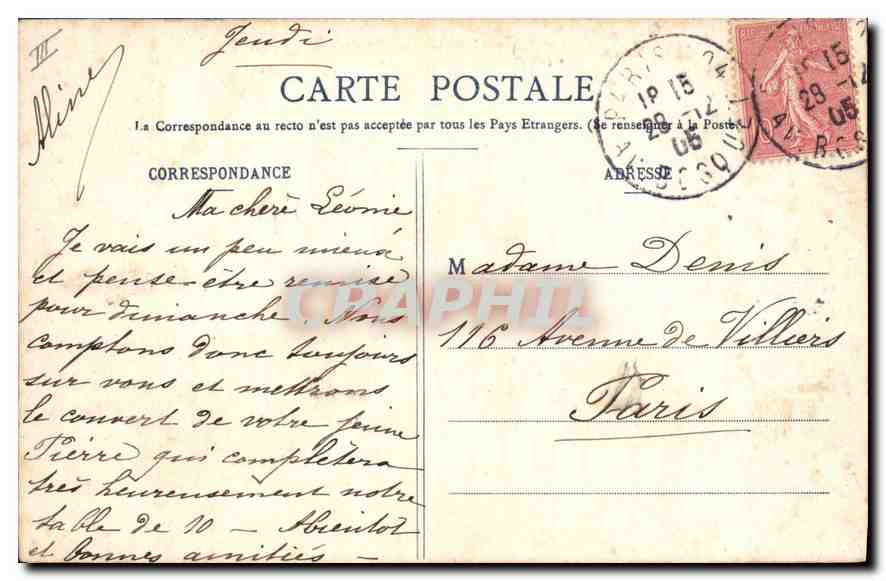 III
Jeudi
Aline
CARTE POSTALE
La Correspondance au recto n'est pas acceptée par tous les Pays Etrangers. (Se renseigner à la Poste.)
CORRESPONDANCE
Ma chère Léonie
Je vais un peu mieux
et pense être remise
pour dimanche. Nous
comptons donc toujours
sur vous et mettrons
le couvert de votre jeune
Pierre qui complètera
très heureusement notre
table de 10 — Abientôt
et bonnes amitiés —
ADRESSE
Madame Denis
116 Avenue de Villiers
Paris
PARIS 24
18 15
28 -12
05
15
28 -12
05
CPAPHIL